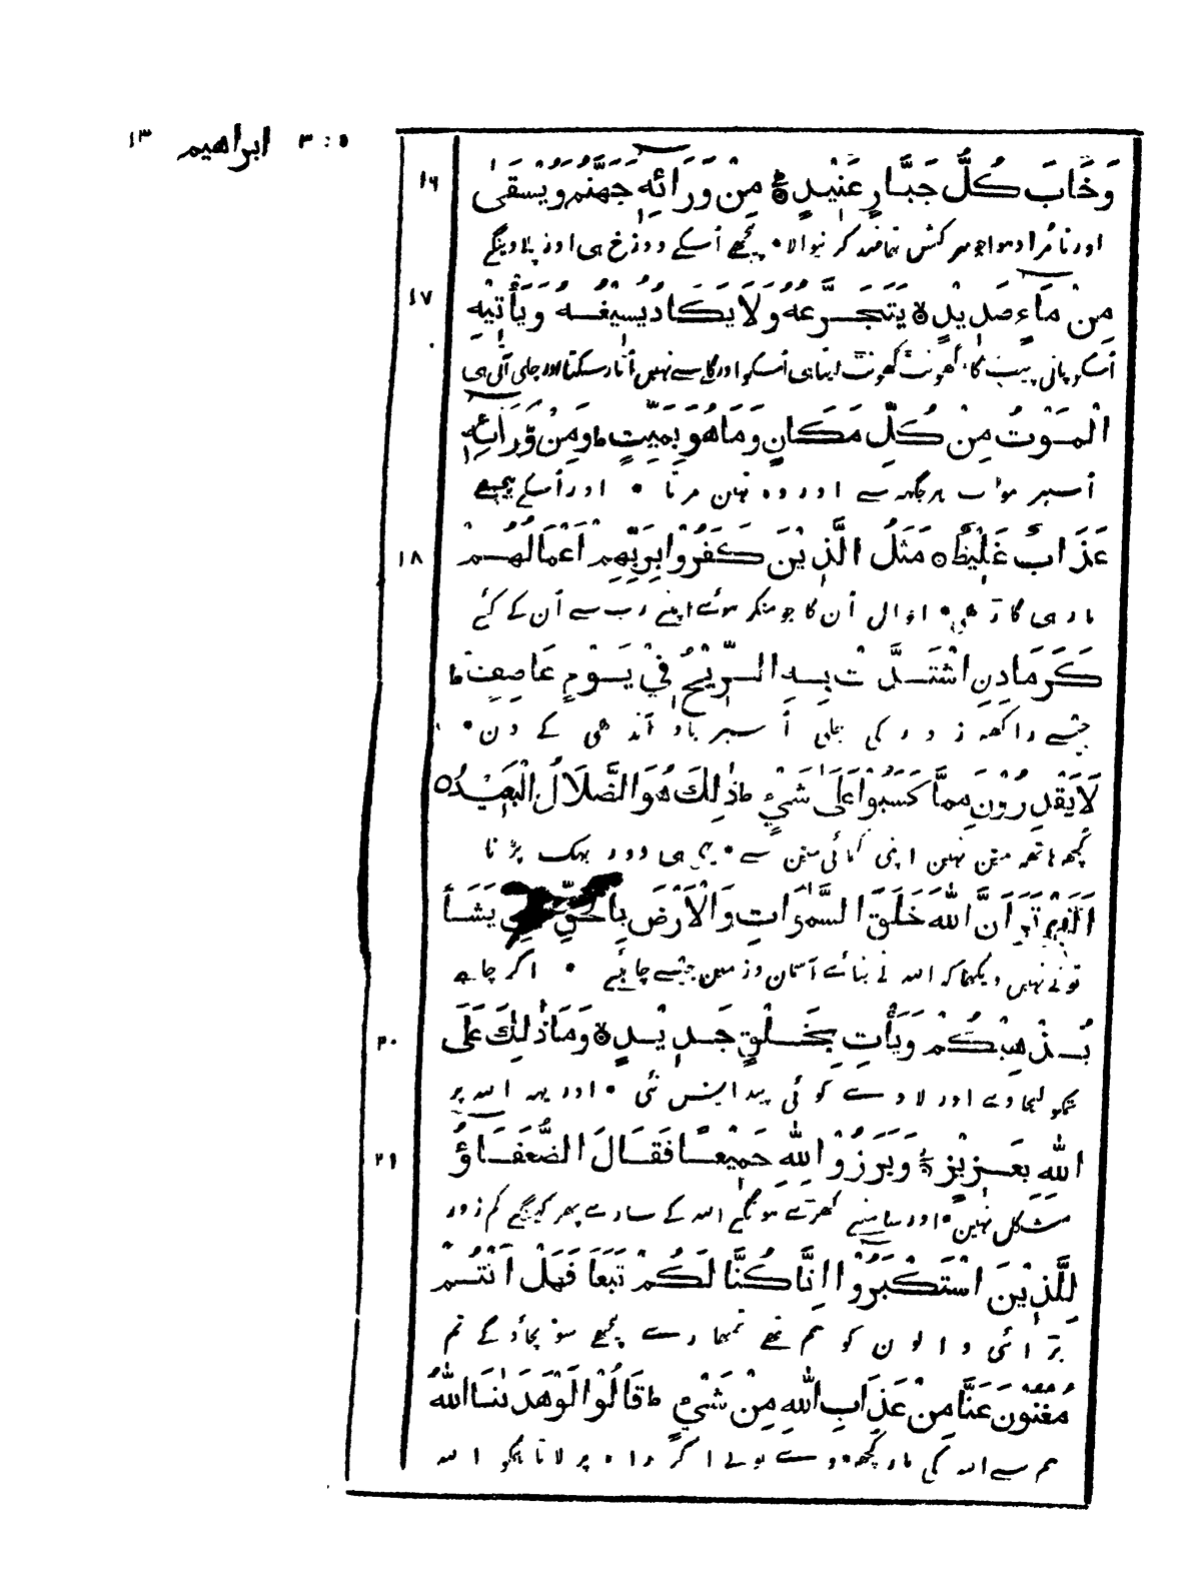 ۳ : ۵ ابراهيم ۱۳
۱۶ وَخَابَ كُلُّ جَبَّارٍ عَنِيْدٍ ۙ مِنْ وَرَائِهٖ جَهَنَّمُ وَيُسْقٰى
اور نامراد ہوا جو سرکش تھا ضد کرنیوالا • پیچھے اُسکے دوزخ ہی اور پلاوینگے
۱۷ مِنْ مَاءٍ صَدِيْدٍ ۙ يَتَجَرَّعُهُ وَلَا يَكَادُ يُسِيْغُهُ وَيَأْتِيْهِ
اُسکو پانی پیب کا • گھونٹ گھونٹ لیتا ہی اُسکو اور گلے سے نہیں اُتار سکتا اور چلی آتی ہی
الْمَوْتُ مِنْ كُلِّ مَكَانٍ وَمَا هُوَ بِمَيِّتٍ ط وَمِنْ وَّرَائِهٖ
اُسپر موت ہر جگہہ سے اور وہ نہین مرتا • اور اُسکے پیچھے
۱۸ عَذَابٌ غَلِيْظٌ ۝ مَثَلُ الَّذِيْنَ كَفَرُوْا بِرَبِّهِمْ اَعْمَالُهُمْ
مار ہی گاڑھی • احوال اُن کا جو منکر ہوئے اپنے رب سے اُن کے کئے
كَرَمَادِنِ اشْتَدَّتْ بِهِ الرِّيْحُ فِيْ يَوْمٍ عَاصِفٍ ط
جیسے راکھہ زور کی چلی اُسپر باو آندھی کے دن •
لَا يَقْدِرُوْنَ مِمَّا كَسَبُوْا عَلٰى شَيْءٍ ط ذٰلِكَ هُوَ الضَّلَالُ الْبَعِيْدُ ۝
کچھہ ہاتھہ مین نہین اپنی کمائی مین سے • یہی ہی دور بہک پڑنا
اَلَمْ تَرَ اَنَّ اللّٰهَ خَلَقَ السَّمٰوَاتِ وَالْاَرْضَ بِالْحَقِّ يَشَأْ
تونے نہیں دیکھا کہ اللہ نے بنائے آسمان و زمین جیسے چاہئے • اگر چاہے
۲۰ يُذْهِبْكُمْ وَيَأْتِ بِخَلْقٍ جَدِيْدٍ ۙ وَمَا ذٰلِكَ عَلَى
تمکو لیجاوے اور لاوے کوئی پیدایش نئی • اور یہہ اللہ پر
۲۱ اللّٰهِ بِعَزِيْزٍ ۙ وَبَرَزُوْا لِلّٰهِ جَمِيْعًا فَقَالَ الضُّعَفَاؤُ
مشکل نہین • اور سامنے کھڑے ہونگے اللہ کے سارے پھر کہینگے کم زور
لِلَّذِيْنَ اسْتَكْبَرُوْا اِنَّا كُنَّا لَكُمْ تَبَعًا فَهَلْ اَنْتُمْ
بڑائی والون کو ہم تھے تمھارے پیچھے سو بچاؤگے تم
مُغْنُوْنَ عَنَّا مِنْ عَذَابِ اللّٰهِ مِنْ شَيْءٍ ط قَالُوْا لَوْ هَدٰنَا اللّٰهُ
ہم سے اللہ کی مار کچھہ • وے بولے اگر راہ پر لاتا ہمکو اللہ